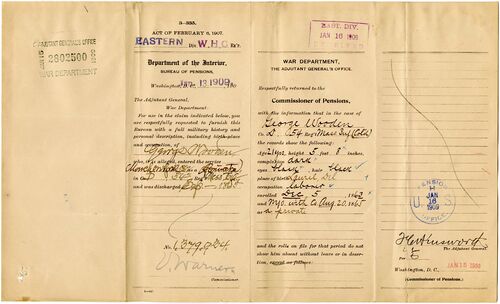 ADJUTANT GENERAL'S OFFICE
2802500
WAR DEPARTMENT
3—335.
ACT OF FEBRUARY 6, 1907.
EASTERN Div. W.H.C. Ex'r.
Department of the Interior,
BUREAU OF PENSIONS,
Washington, D. C., JAN 13 1909, 190
The Adjutant General,
War Department
For use in the claim indicated below, you
are respectfully requested to furnish this
Bureau with a full military history and
personal description, including birthplace
and occupation, of
George Wooden
who, it is alleged, entered the service
and was discharged
No. 1,379,924
V. Warner
Commissioner.
EAST. DIV.
JAN 16 1909
RECEIVED
WAR DEPARTMENT,
THE ADJUTANT GENERAL'S OFFICE.
Respectfully returned to the
Commissioner of Pensions,
with the information that in the case of
George Wooden
Co. D, 54 Reg't Mass Inf (Cold)
the records show the following:
Age 21 yrs, height 5 feet 8 inches,
complexion dark
eyes black hair black
place of birth Laurel, Del
occupation laborer
enrolled Dec 5, 1863
and M.O. with Co Aug 20, 1865
as a private
and the rolls on file for that period do not
show him absent without leave or in deser-
tion, except as follows:
PENSION
U S
JAN
16
1909
OFFICE
F C Ainsworth
The Adjutant General.
Washington, D. C., JAN 15 1909
(Commissioner of Pensions.)